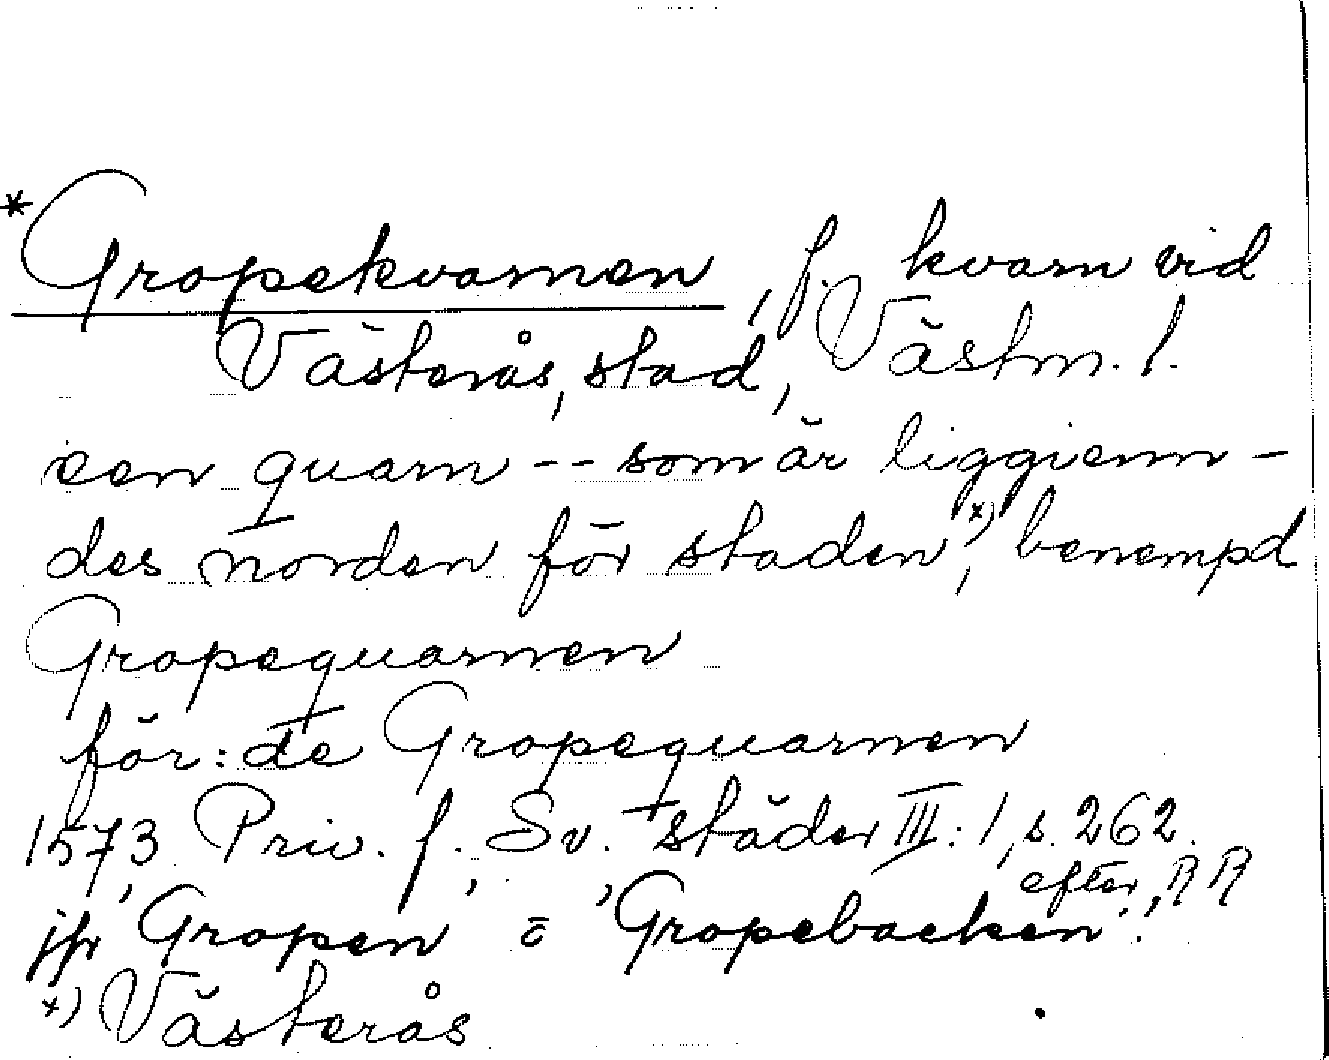 *Gropekvarnen, f. kvarn vid
Västerås, stad, Västm. l.
een quarn -- som är liggienn-
des norden för staden,ˣ⁾ benempd
Gropequarnen
för: de Gropequarnen
1573 Priv. f. Sv. städer III: 1, s. 262.
efter RR
jfr 'Gropen' o 'Gropebacken'.
x) Västerås